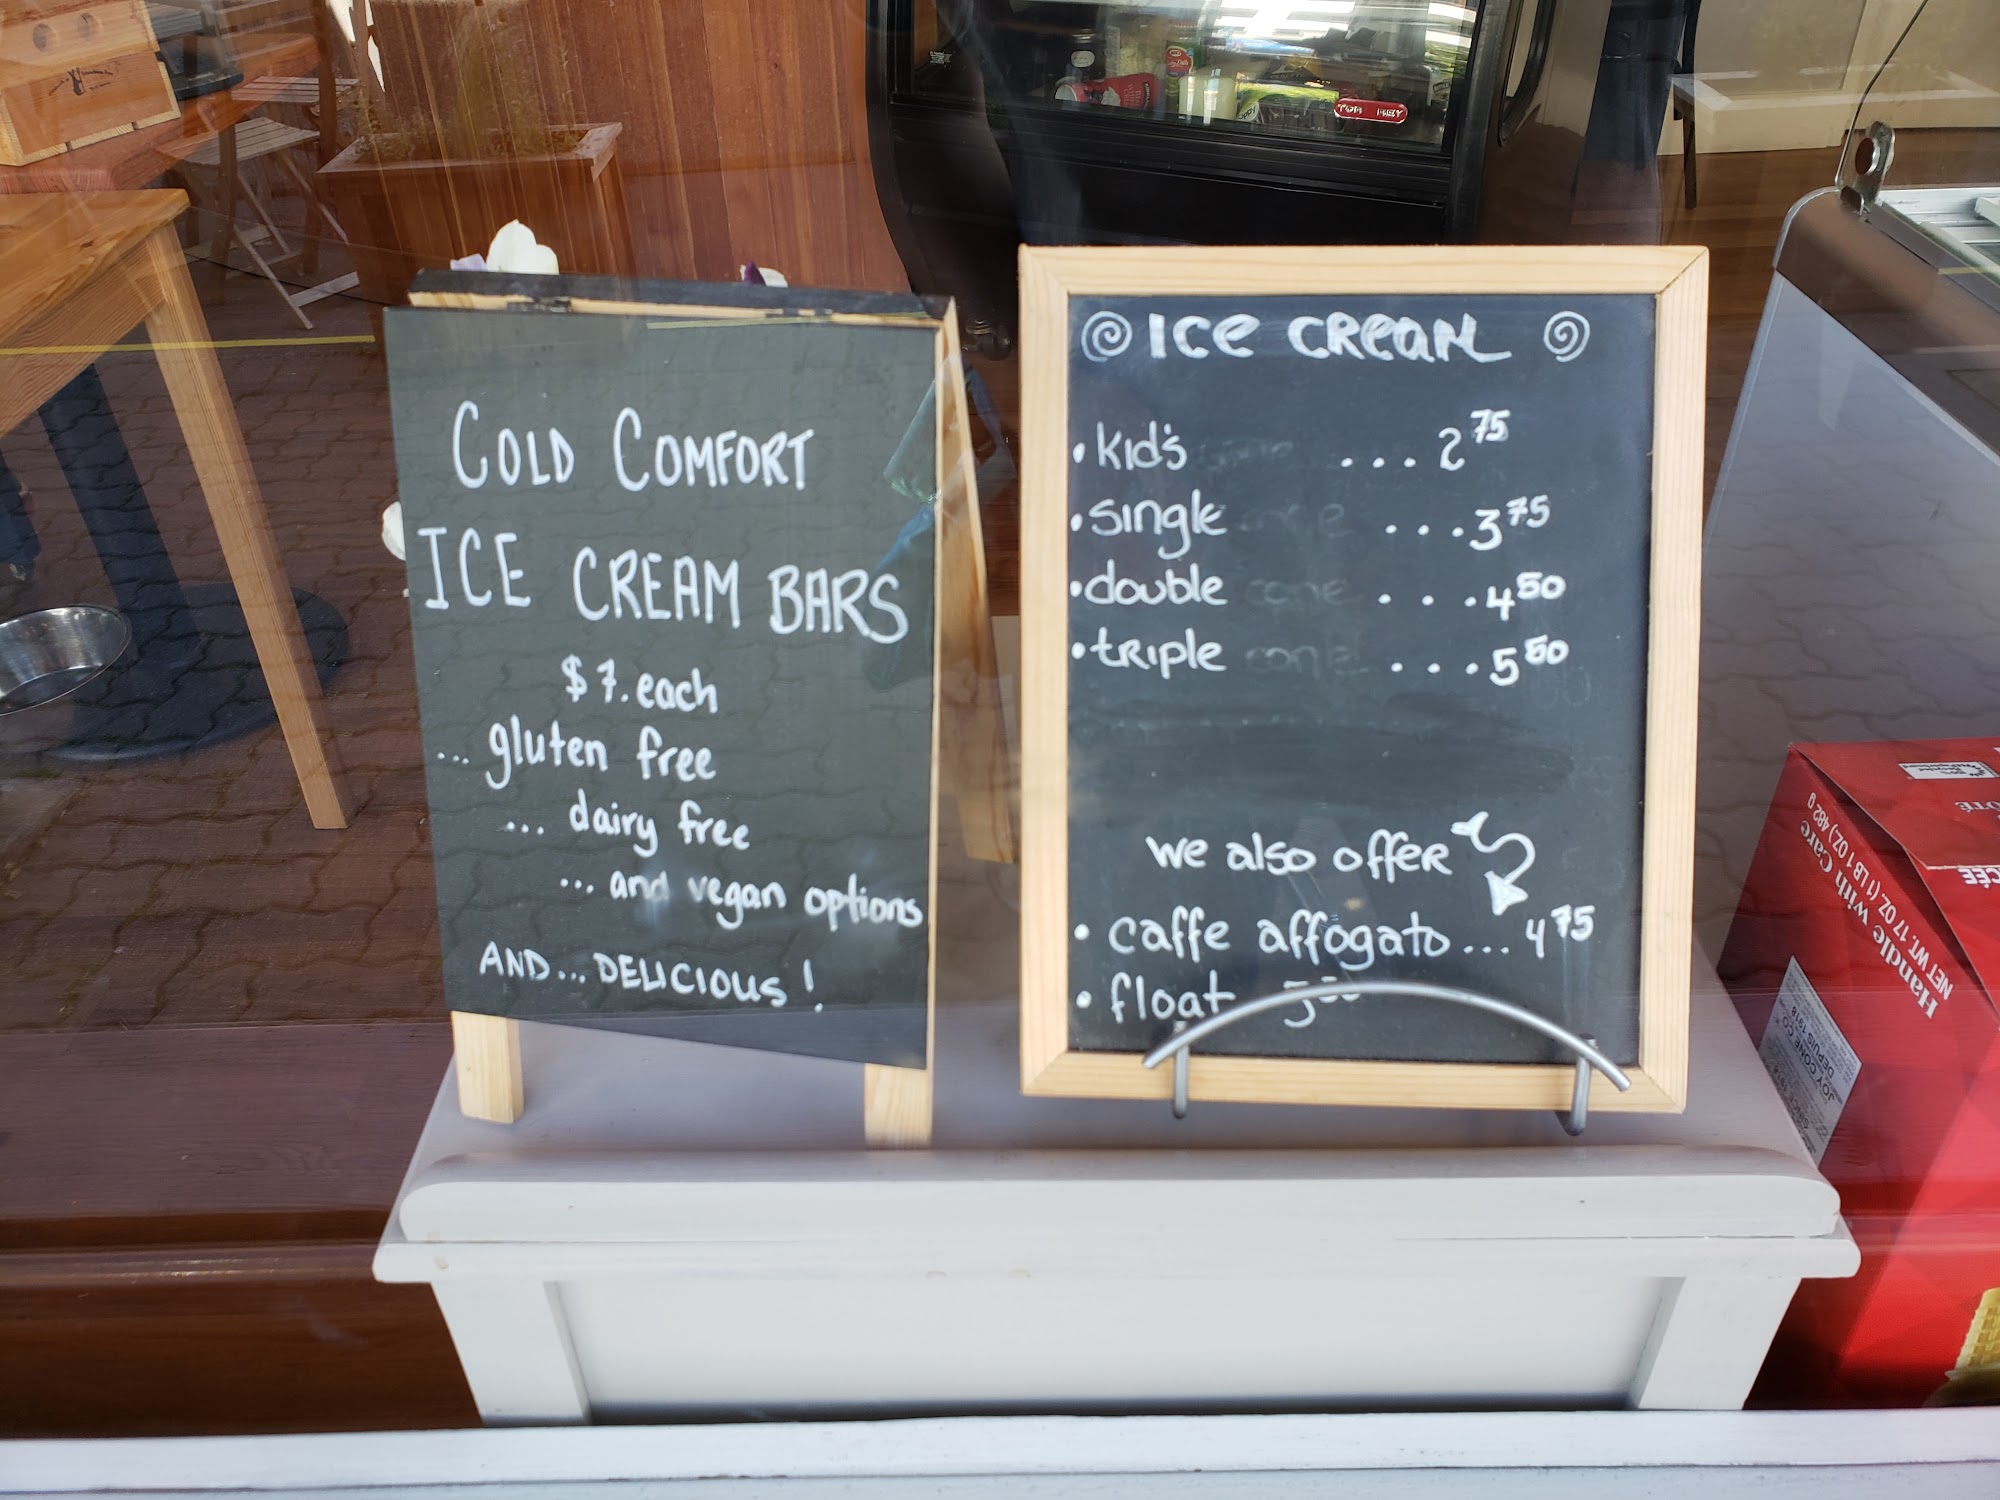 COLD COMFORT
ICE CREAM BARS
$7. each
... gluten free
... dairy free
... and vegan options
AND... DELICIOUS!
ICE CREAM
• kid's ... 2 75
• single ... 3 75
• double ... 4 50
• triple ... 5 50
we also offer
• caffe affogato ... 4 75
• float
Handle with Care
NET WT. 17 OZ (1 LB 1 OZ.) 482 g
JOY CONE CO
DEPUIS 1918